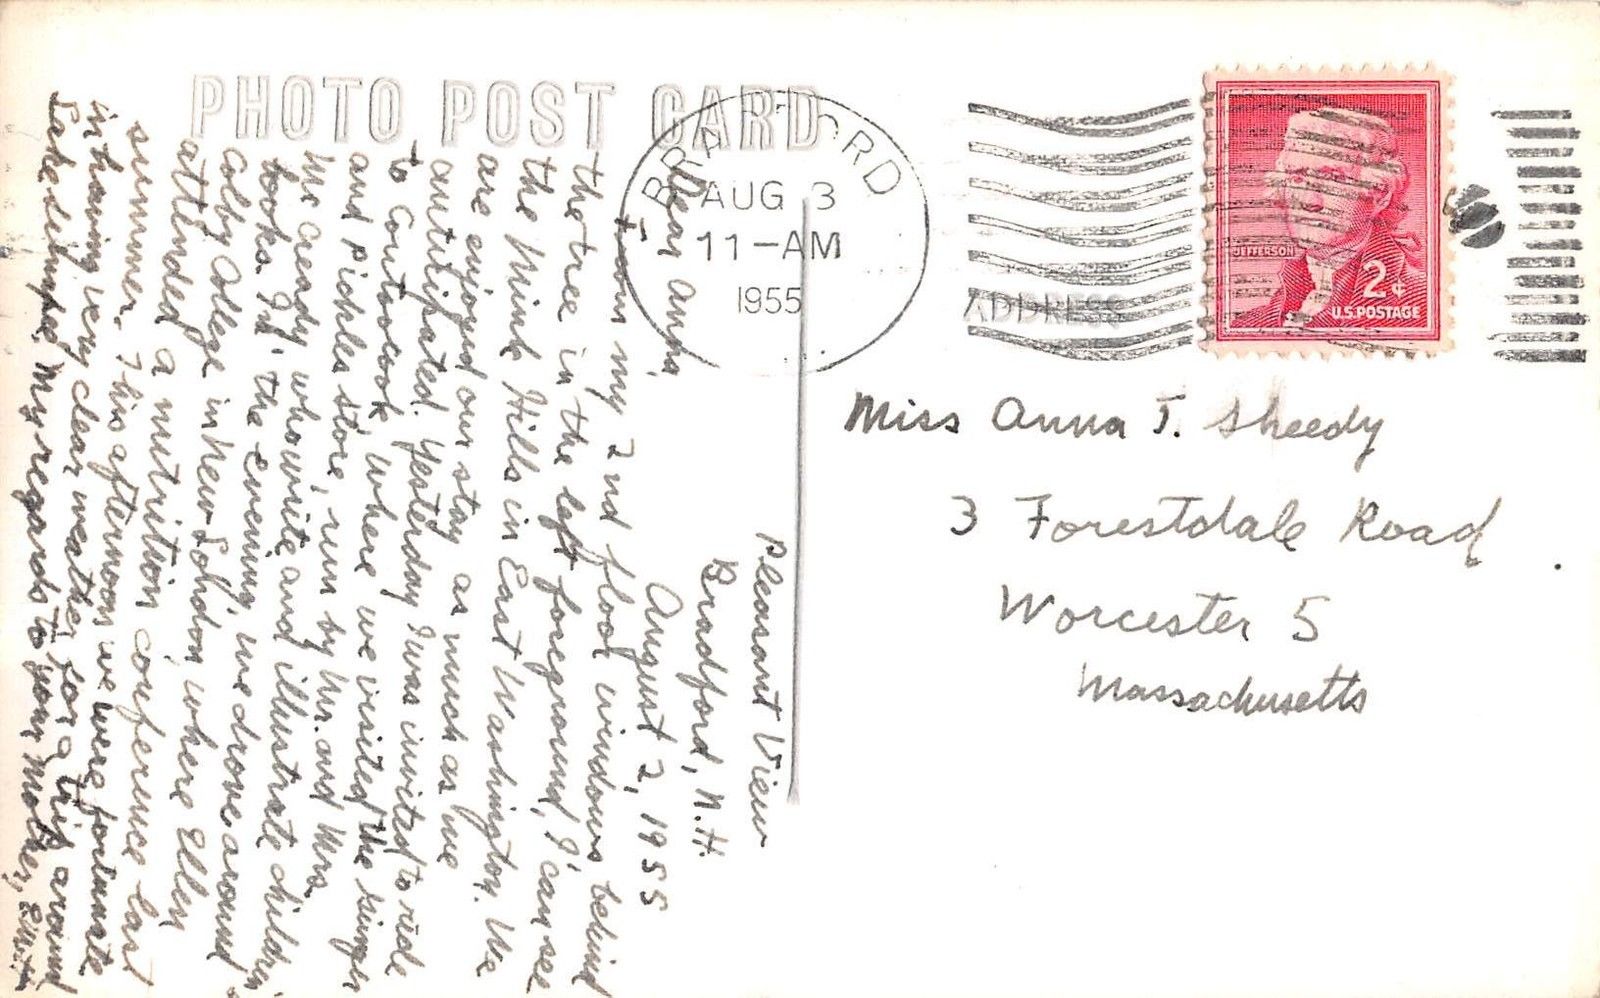 PHOTO POST CARD
BRADFORD
AUG 3
11-AM
1955
JEFFERSON
2¢
U.S. POSTAGE
ADDRESS
Miss Anna T. Sheedy
3 Forestdale Road
Worcester 5
Massachusetts
Pleasant View
Bradford, N.H.
August 2, 1955
Dear Anna,
From my 2nd floor windows behind
the tree in the left foreground, I can see
the Mink Hills in East Washington. We
are enjoying our stay as much as we
anticipated. Yesterday I was invited to ride
to Contoocook, where we visited the
and Pickles store, run by Mr. and Mrs.
McCready, who write and illustrate children
books. In the evening, we drove around
Colby College in New London where Ellen
attended a nutrition conference last
summer. This afternoon we were fortunate
in having very clear weather for a trip around
Lake My regards to your Mother,